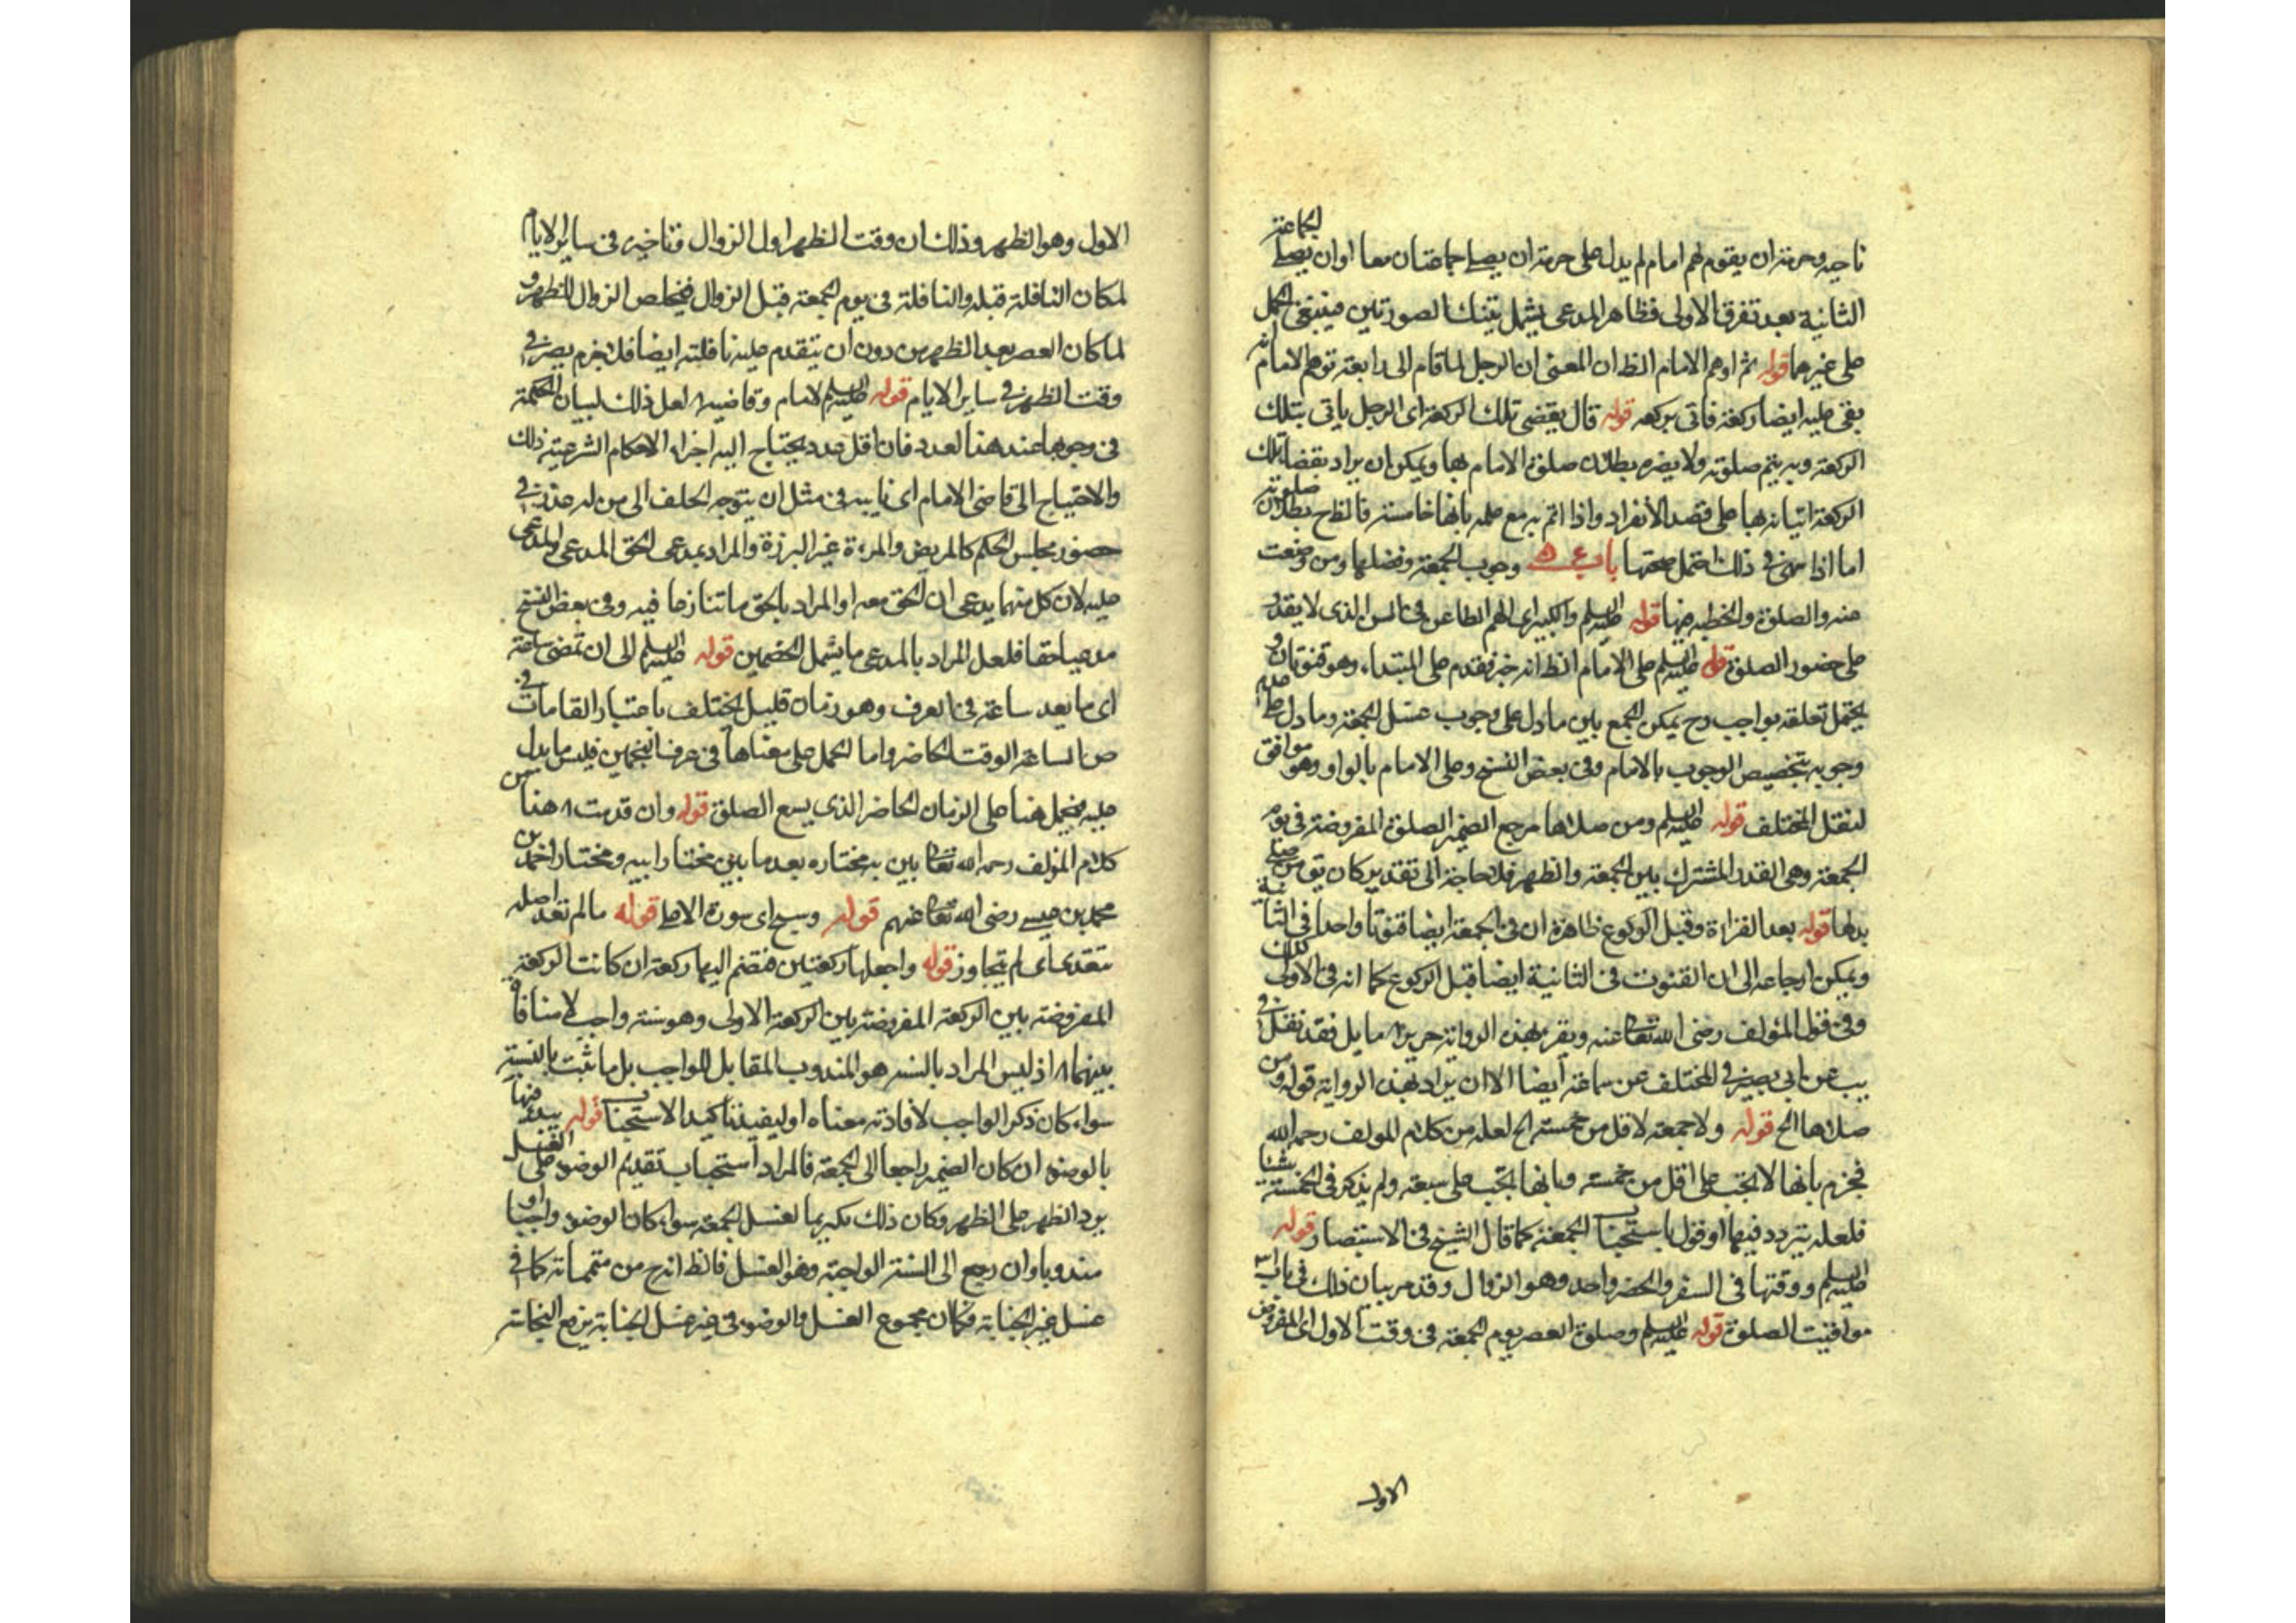 ناحية وحرمة ان يقوم لهم امام لم يدل على حرمة ان يصلى جماعتان معا او ان يصلى الجماعة
الثانية بعد تفرق الاولى فظاهر المدعى يشمل تينك الصورتين فينبغى الحمل
على غيرهما قوله ثم اوهم الامام الظ ان المعنى ان الرجل لما قام الى رابعته توهم الامام انه
بقى عليه ايضا ركعة فاتى بركعه قوله قال يقضى تلك الركعة اى الرجل ياتى بتلك
الركعة وبه يتم صلوته ولا يضره بطلان صلوة الامام بها ويمكن ان يراد بقضا تلك
الركعة اتيانه بها على قصد الانفراد واذا اتم به مع علمه بانها خامسة فالظ ح بطلان صلوته
اما اذا سهى فى ذلك احتمل صحتها باب وجوب الجمعة وفضلها ومن وضعت
عنه والصلوة والخطبه فيها قوله عليه السلم والكبير اى الهم الطاعن فى السن الذى لا يقدر
على حضور الصلوة قوله عليه السلم على الامام الظ انه خبر فقدم على المبتداء وهو قنوتان و
يحتمل تعلقه بواجب وح يمكن الجمع بين ما دل على وجوب غسل الجمعة وما دل على عدم
وجوبه بتخصيص الوجوب بالامام وفى بعض النسخ وعلى الامام بالواو وهو موافق
لنقل المختلف قوله عليه السلم ومن صلاها مرجع الضمير الصلوة المفروضة فى يوم
الجمعة وهى القدر المشترك بين الجمعة والظهر فلا حاجة الى تقدير كان يق من صلى
بدلها قوله بعد القراءة وقبل الركوع ظاهره ان فى الجمعة ايضا قنوتا واحدا فى الثانية
ويمكن ارجاعه الى ان القنوت فى الثانية ايضا قبل الركوع كما انه فى الاولى كذلك
وفى قول المؤلف رضى الله تعالى عنه وتفرد بهذه الرواية حريز اه ما يل فقد نقل فى
يب عن ابى بصير وفى المختلف عن سماعة ايضا الا ان يراد بهذه الرواية قوله ومن
صلاها الخ قوله ولا جمعة لاقل من خمسة الخ لعله من كلام المولف رحمه الله
فجزم بانها لا تجب على اقل من خمسة وبانها تجب على سبعة ولم يذكر فى الخمسة شيئا
فلعله يتردد فيها او قول باستحباب الجمعة كما قال الشيخ فى الاستبصار قوله
عليه السلم ووقتها فى السفر والحضر واحد وهو الزوال وقد مر بيان ذلك فى باب
مواقيت الصلوة قوله عليه السلم وصلوة العصر يوم الجمعة فى وقت الاول اى المفروض
الاول
الاول وهو الظهر وذلك ان وقت الظهر اول الزوال وتاخيره فى ساير الايام
لمكان النافلة قبله والنافلة فى يوم الجمعة قبل الزوال فيخلص الزوال للظهر و
لما كان العصر بعد الظهر من دون ان يتقدم عليه نافلته ايضا فلا جرم يصير فى
وقت الظهر فى ساير الايام قوله عليه السلم الامام وقاضيه اه لعل ذلك لبيان الحكمة
فى وجوبها عند هذا العدد فان اقل عدد يحتاج اليه اجراء الاحكام الشرعية ذلك
والاحتياج الى قاضى الامام اى نايبه فى مثل ان يتوجه الحلف الى من له عذر فى
حضور مجلس الحكم كالمريض والمرءة غير البرزة والمراد بمدعى الحق المدعى والمدعى
عليه لان كل منهما يدعى ان الحق معه او المراد بالحق ما تنازعا فيه وفى بعض النسخ
مدعيا حقا فلعل المراد بالمدعى ما يشمل الخصمين قوله عليه السلم الى ان تمضى ساعة
اى ما يعد ساعة فى العرف وهو زمان قليل يختلف باعتبار القامات فى
ص الساعة الوقت الحاضر واما الحمل على معناها فى عرف المنجمين فليس ما يدل
عليه فيحمل هنا على الزمان الحاضر الذى يسع الصلوة قوله وان قدمت اه هذا من
كلام المؤلف رحمه الله تعالى بين به مختاره بعد ما بين مختار ابيه ومختار احمد بن
محمد بن عيسى رضى الله تعالى عنهم قوله وسبح اى سورة الاعلى قوله ما لم تعد اصله
تتعدى اى لم تتجاوز قوله واجعلها ركعتين فتضم اليها ركعة ان كانت الركعة
المفروضة بين الركعة المفروضة بين الركعة الاولى وهو سنة واجب لا منافاة
بينهما اه اذ ليس المراد بالسنة هو المندوب المقابل للواجب بل ما ثبت بالسنة
سواء كان ذكر الواجب لافادته معناه او ليفيد تاكيد الاستحباب قوله يبدء فيها
بالوضوء ان كان الضمير راجعا الى الجمعة فالمراد استحباب تقديم الوضوء على الغسل
يورد الطهر على الطهر وكان ذلك تكريما لغسل الجمعة سواء كان الوضوء واجبا او
مندوبا وان رجع الى السنة الواجبة وهو الغسل فالظ انه ح من متمماته كما فى
غسل غير الجنابة فكان مجموع الغسل والوضوء فى غير غسل الجنابة يرفع النجاسة